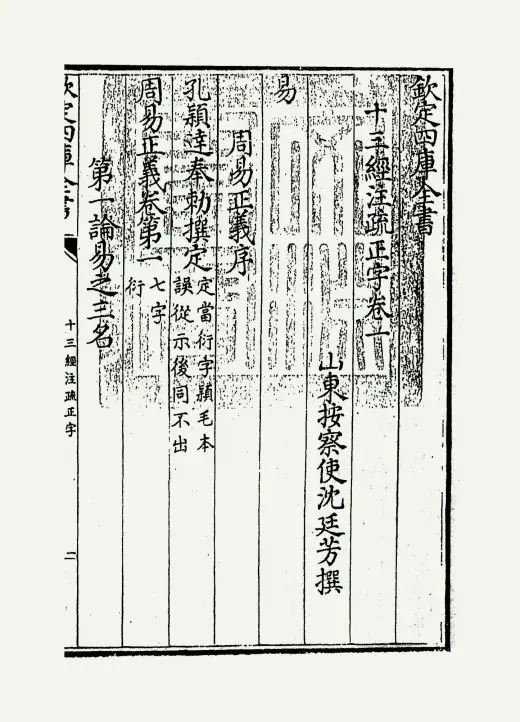 欽定四庫全書
十三經注疏正字卷一
山東按察使沈廷芳撰
易
周易正義序
孔穎達奉勅撰定定當衍字穎毛本
誤從示後同不出
周易正義卷第一七字
衍
第一論易之三名
欽定四庫全書
十三經注疏正字
二